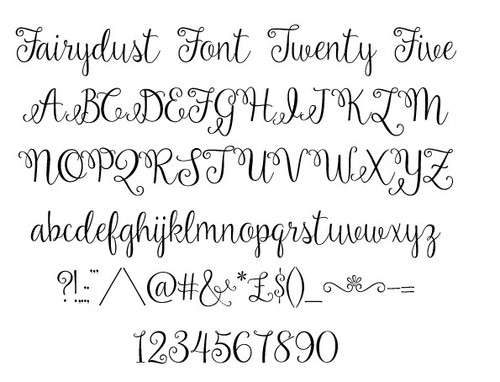 Fairydust Font Twenty Five
ABCDEFGHIJKLM
NOPQRSTUVWXYZ
abcdefghijklmnopqrstuvwxyz
?!.,:;"'/\@#&*£$()_~-=
1234567890